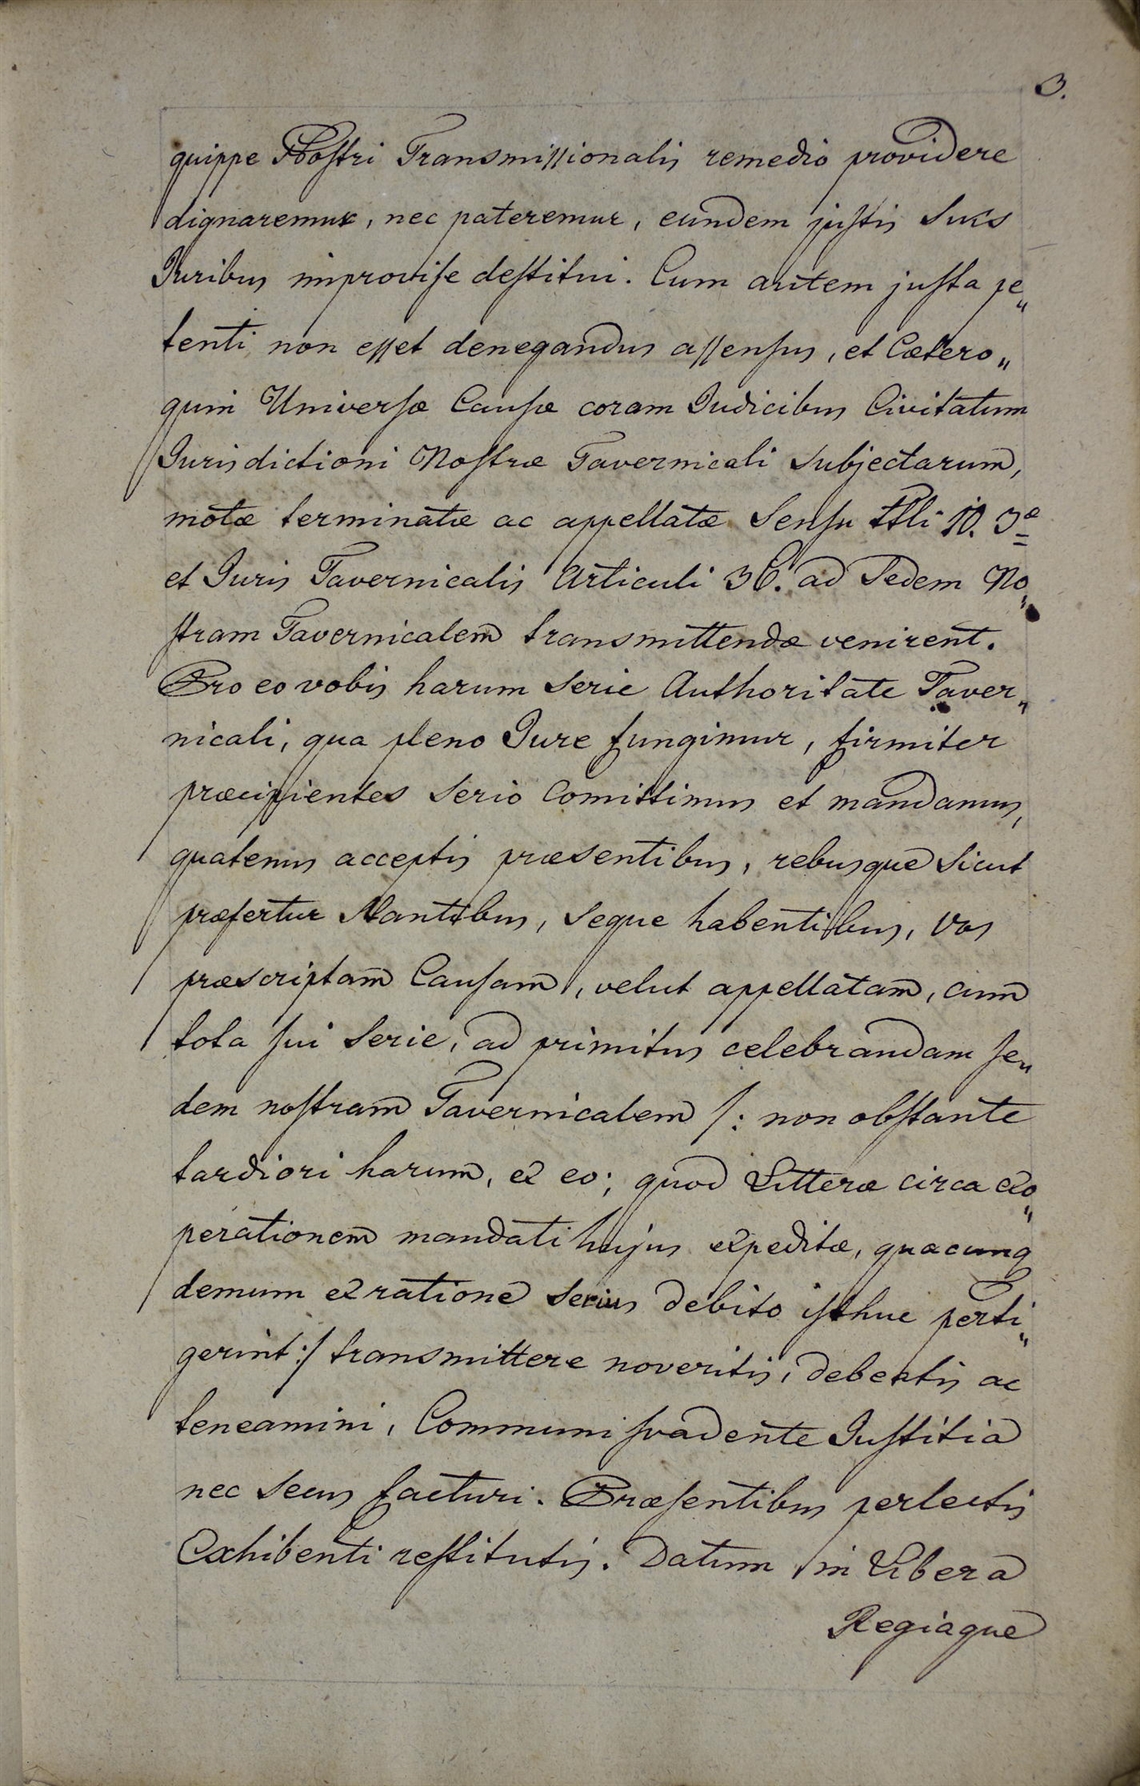 3.
quippe Nostri Transmissionalis remedio providere
dignaremur, nec pateremur, eundem justis suis
Juribus improvise destitui. Cum autem justa pe„
tenti non esset denegandus assensus, et Cætero„
quin Universæ Causæ coram Judicibus Civitatum
Jurisdictioni Nostræ Tavernicali subjectarum,
motæ terminatæ ac appellatæ Sensu ttli 10. 3æ
et Juris Tavernicalis Articuli 36. ad Sedem No„
stram Tavernicalem transmittendæ venirent.
Pro eo vobis harum serie Authoritate Taver„
nicali, qua pleno Jure fungimur, firmiter
præcipientes serio Comittimus et mandamus,
quatenus acceptis præsentibus, rebusque sicut
præfertur stantibus, seque habentibus, vos
præscriptam Causam, velut appellatam, cum
tota sui serie, ad primitus celebrandam se„
dem nostram Tavernicalem /: non obstante
tardiori harum, ex eo; quod Litteræ circa exo„
perationem mandati hujus expeditæ, quacunq
demum ex ratione serius debito isthuc perti„
gerint :/ transmittere noveritis, debeatis ac
teneamini, Communi svadente Justitia
nec secus facturi. Præsentibus perlectis
Exhibenti restitutis. Datum in Libera
Regiaque